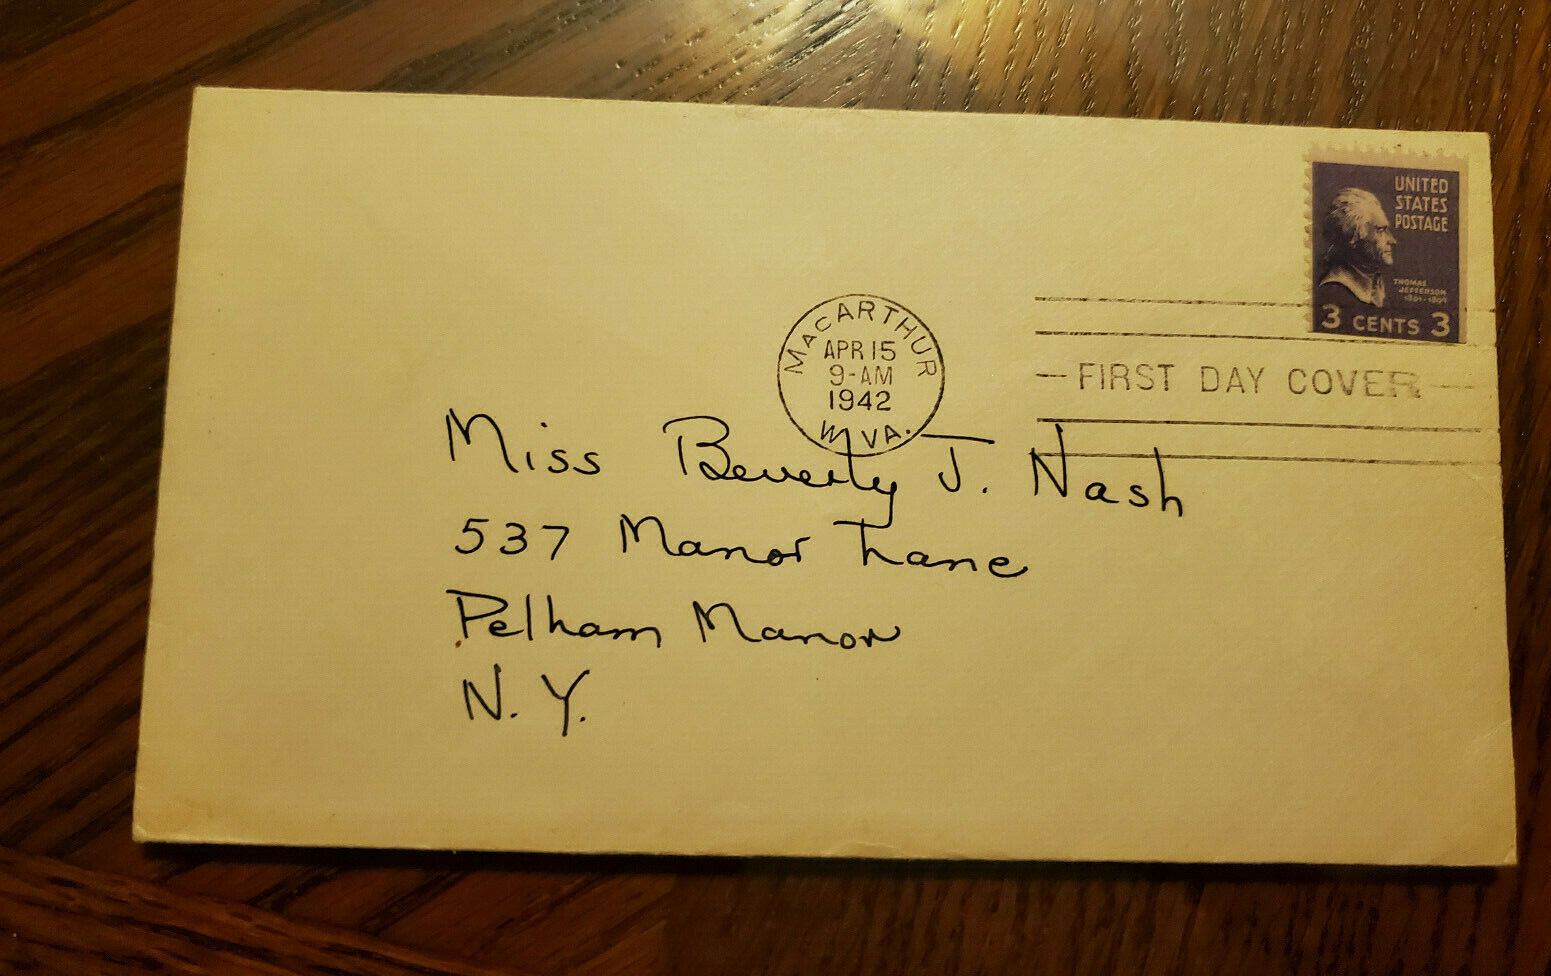 UNITED
STATES
POSTAGE
THOMAS
JEFFERSON
1801-1809
3 CENTS 3
MacARTHUR
APR 15
9-AM
1942
W. VA.
FIRST DAY COVER
Miss Beverly J. Nash
537 Manor Lane
Pelham Manor
N.Y.